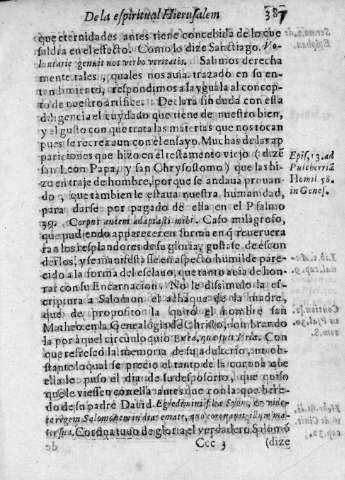 De la espiritual Hierusalem 387
que eternidades antes tiene concebida de lo que
saldra en el effecto. Como lo dize Sanctiago. Vo-
luntarie genuit nos verbo veritatis. Salimos derecha
mente tales, y quales nos auia trazado en su en-
tendimiento, respondimos a la ygual a el concep-
to de nuestro artifice. Declara sin duda con esta
diligencia el cuydado que tiene de nuestro bien,
y el gusto con que trata las materias que nos tocan
pues se recrea aun con el ensayo. Muchas de las ap
pariciones que hizo en el testamento viejo (dize
san Leon Papa, y san Chrysostomo) que las hi-
zo en traje de hombre, porque se andaua prouan
do, que tambien le estaua nuestra humanidad,
para darse por pagado de ella en el Psalmo
39. Corpus autem adaptasti mihi. Caso milagroso,
que pudiendo apparecer en forma en que reueruera
ran los resplandores de su gloria, gusta de escon
derlos, y se manifesta se en aspecto humilde pare-
cido a la forma del esclauo, que tanto auia de hon-
rar con su Encarnacion. No le dissimulo la es-
criptura a Salomon el achaque de la madre,
que de proposito la quitò el nombre san
Matheo en la Genealogia de Christo, nombrando
la por aquel circunloquio Ex ea, quae fuit Vriae. Con
que refrescò la memoria de su adulterio, no ob-
stante lo qual se precio el tanto de la corona que
ella le puso el dia de su desposorio, que quiso
que le viessen con ella antes que con la que here-
do de su padre Dauid. Egredimini filiae Syon, & vide-
te regem Salomonem in diademate, quo coronauit illum ma-
ter sua. Corona tudo de gloria el verdadero Salomõ
Ccc 3 (dize
Epis. 13. ad
Pulcheriã
Homil 58.
in Genes.